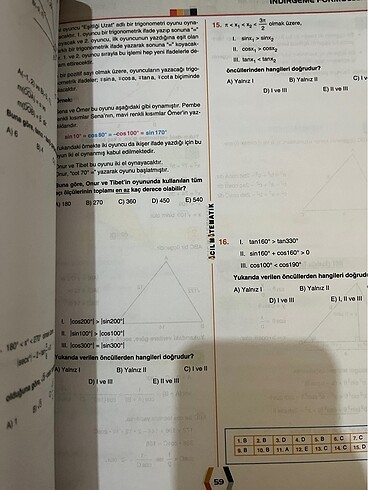 İNDİRGEME
oyuncu "Eşitliği Uzat" adlı bir trigonometri oyunu oyna-
1. oyuncu bir trigonometrik ifade yazıp sonuna "="
ve 2. oyuncu, ilk oyuncunun yazdığına eşit olan
bir trigonometrik ifade yazarak sonuna "=" koyacak-
1. ve 2. oyuncu sırayla bu işlemi hep yeni ifadelerle de-
ettirecektir.
bir pozitif sayı olmak üzere, oyuncuların yazacağı trigo-
ifadeler; ∓sin a, ∓cos a, ∓tan a, ∓cot a biçiminde
Örnek:
Sena ve Ömer bu oyunu aşağıdaki gibi oynamıştır. Pembe
renkli kısımlar Sena'nın, mavi renkli kısımlar Ömer'in yaz-
sin10° = cos80° = –cos100° = sin170°
Yukarıdaki örnekte iki oyuncu da ikişer ifade yazdığı için bu
oyun iki el oynanmış kabul edilmektedir.
Onur ve Tibet bu oyunu iki el oynayacaktır.
Onur, "cot 70° =" yazarak oyunu başlatmıştır.
Buna göre, Onur ve Tibet'in oyununda kullanılan tüm
açı ölçülerinin toplamı en az kaç derece olabilir?
A) 180 B) 270 C) 360 D) 450 E) 540
I. |cos200°| > |sin200°|
II. |sin100°| > |cos100°|
III. |cos300°| = |sin300°|
Yukarıda verilen öncüllerden hangileri doğrudur?
A) Yalnız I B) Yalnız II C) I ve II
D) I ve III E) II ve III
15. π < x₁ < x₂ < 3π/2 olmak üzere,
I. sinx₁ > sinx₂
II. cosx₁ > cosx₂
III. tanx₁ < tanx₂
öncüllerinden hangileri doğrudur?
A) Yalnız I B) Yalnız II
D) I ve III E) II ve III
ACİL MATEMATİK
16. I. tan160° > tan330°
II. sin160° + cos160° > 0
III. cos100° < cos190°
Yukarıda verilen öncüllerden hangileri
A) Yalnız I B) Yalnız II
D) I ve III E) I, II ve III
1. B 2. B 3. D 4. D 5. B 6. C 7. C
9. B 10. B 11. A 12. E 13. C 14. C 15. D
59